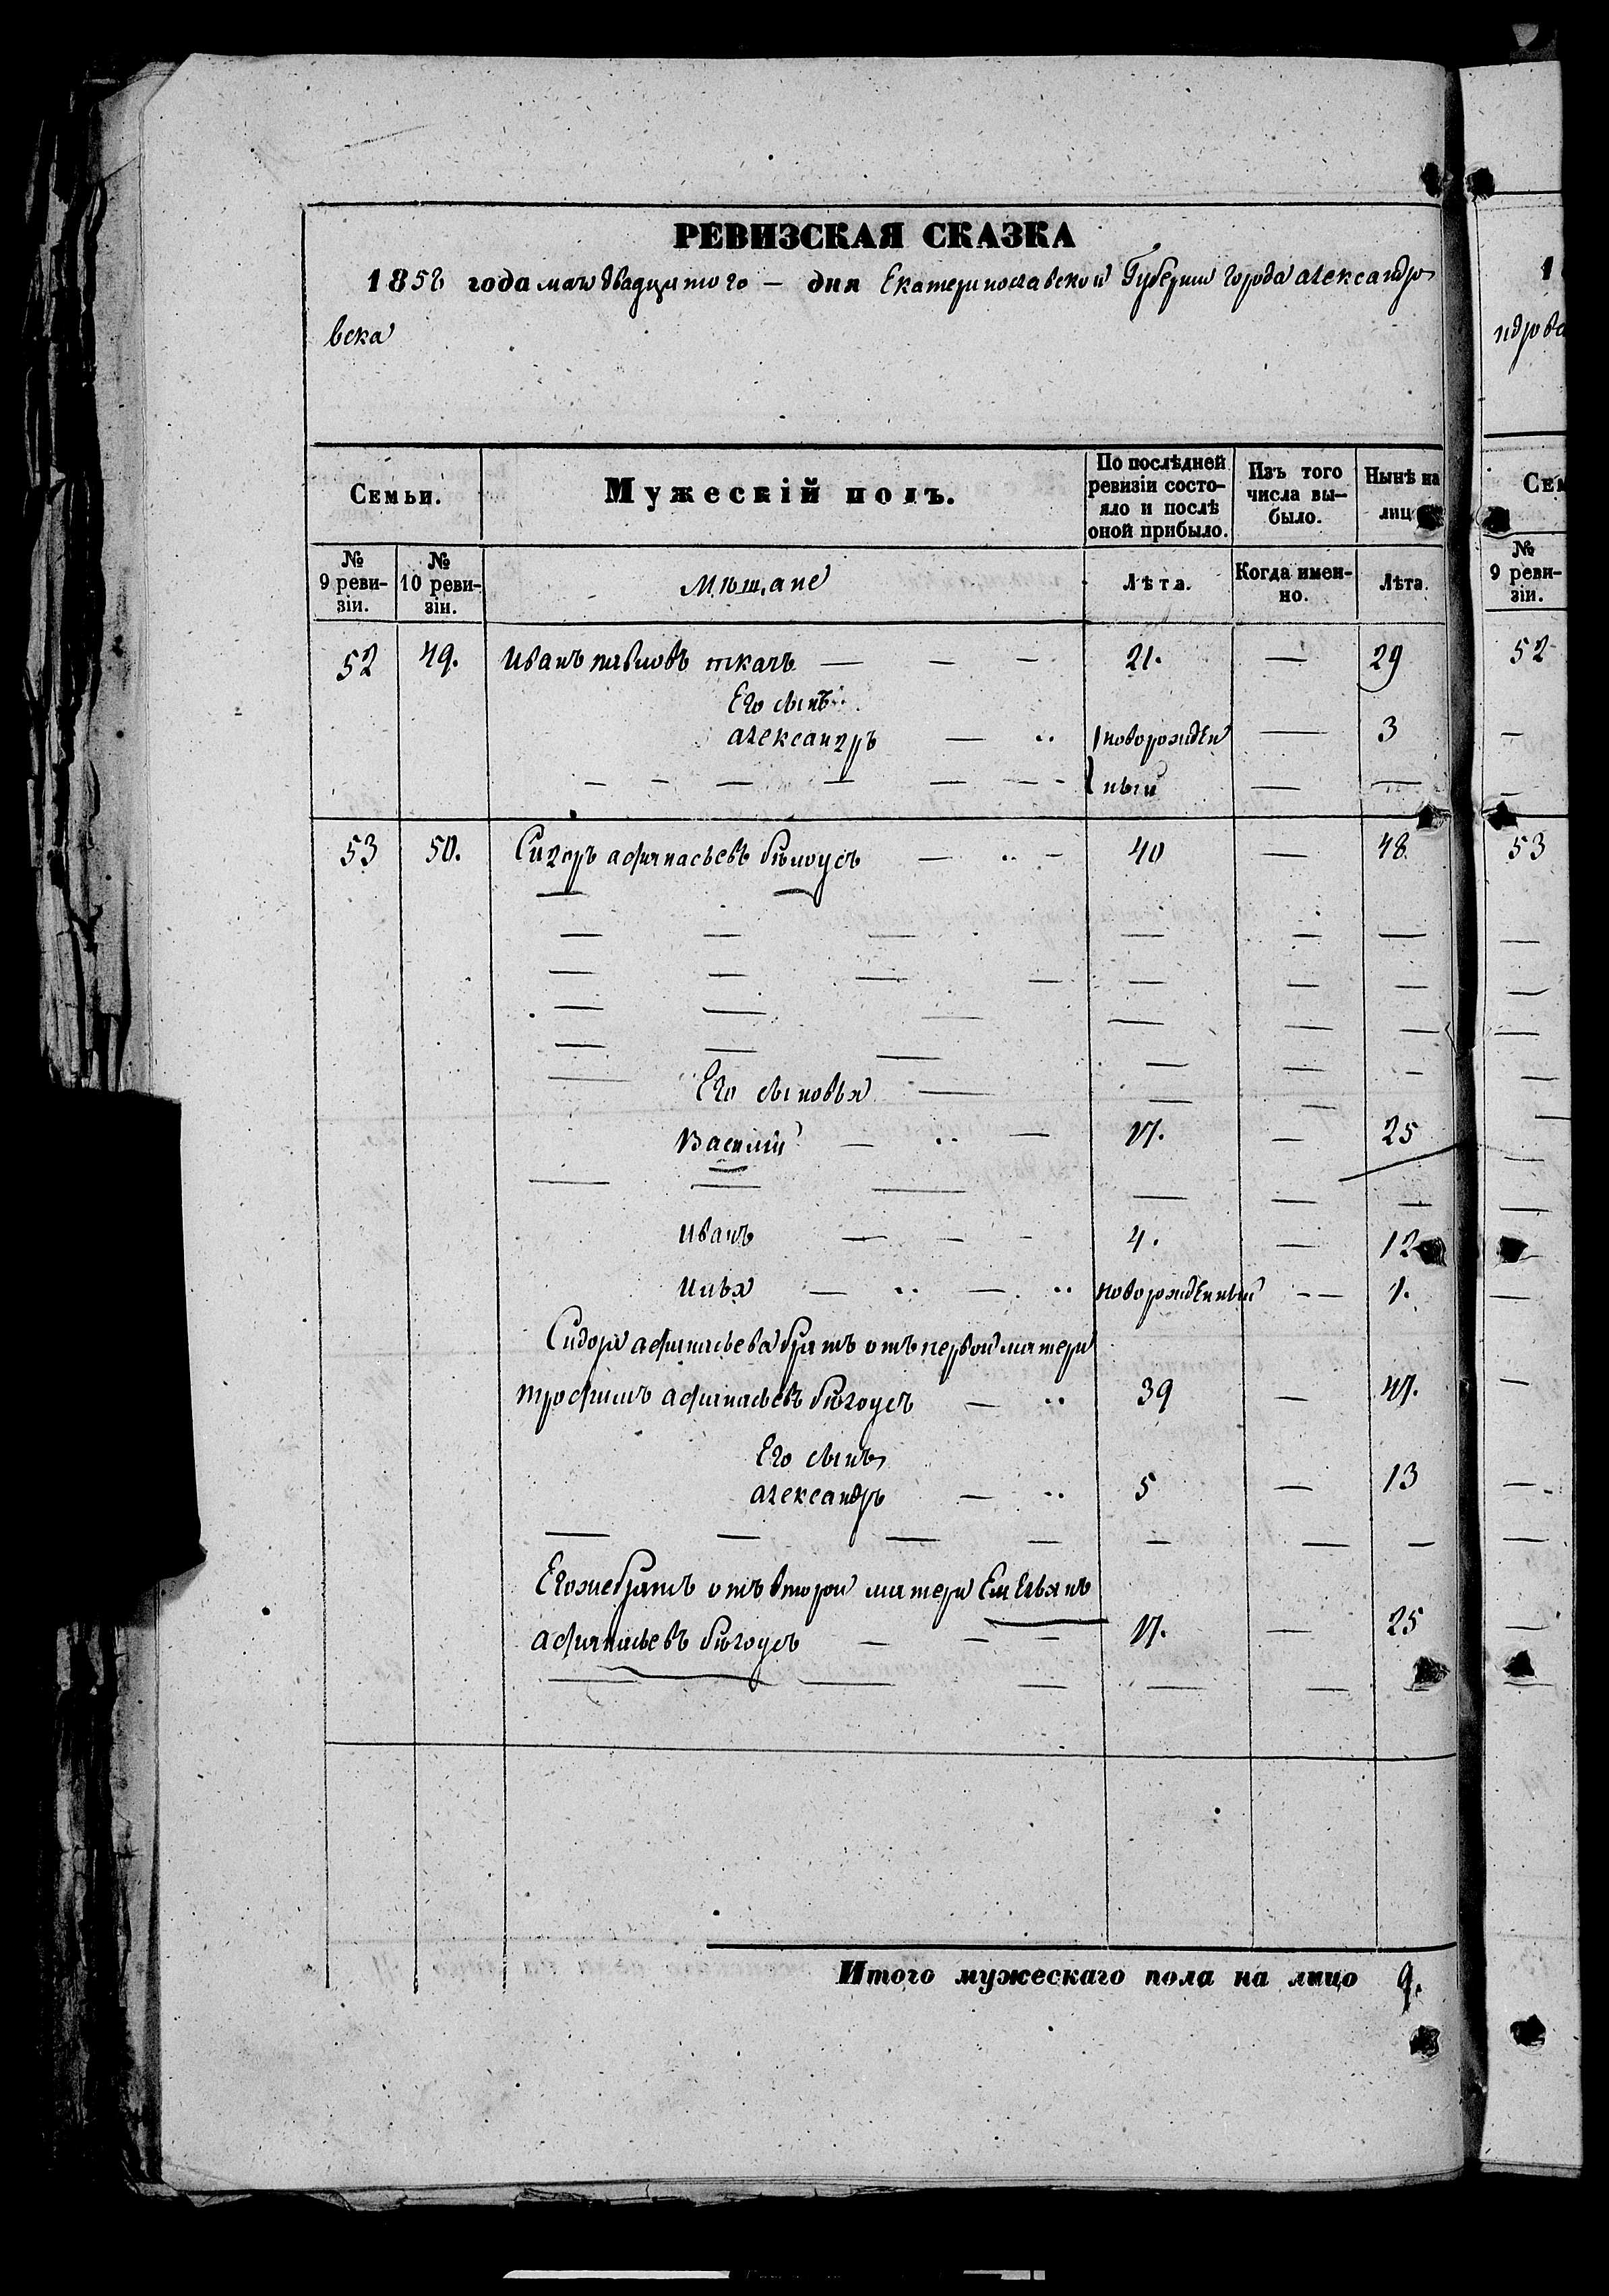 РЕВИЗСКАЯ СКАЗКА
1858 года мая двадцатого — дня Екатеринославской Губернии города александро
вска
Семьи.
Мужескій полъ.
По послѣдней ревизіи состо-яло и послѣ оной прибыло.
Изъ того числа вы-было.
Нынѣ на лицо
№ 9 реви-зіи.
№ 10 реви-зіи.
Мѣщане
Лѣта.
Когда имен-но.
Лѣта.
52 49. Иванъ павловъ ткачъ — — — 21. — 29
Его сынъ
александръ — новорожден — 3
ный — —
53 50. Сидоръ афанасьевъ бѣлоусъ — — 40 — 48.
Его сыновья
Василій — — 17. — 25
Иванъ — — - 4. — 12
Илья — — новорожденный - - 1.
Сидора афанасьева братъ отъ первой матери
трофимъ афанасьевъ бѣлоусъ — 39 — 47.
Его сынъ
александръ — 5 — 13
Егожебратъ отъ второй матери Емельянъ
афанасьевъ бѣлоусъ — — — 17. — 25
Итого мужескаго пола на лицо 9.
1
ндровс
Сем
№ 9 реви-зіи.
52
53